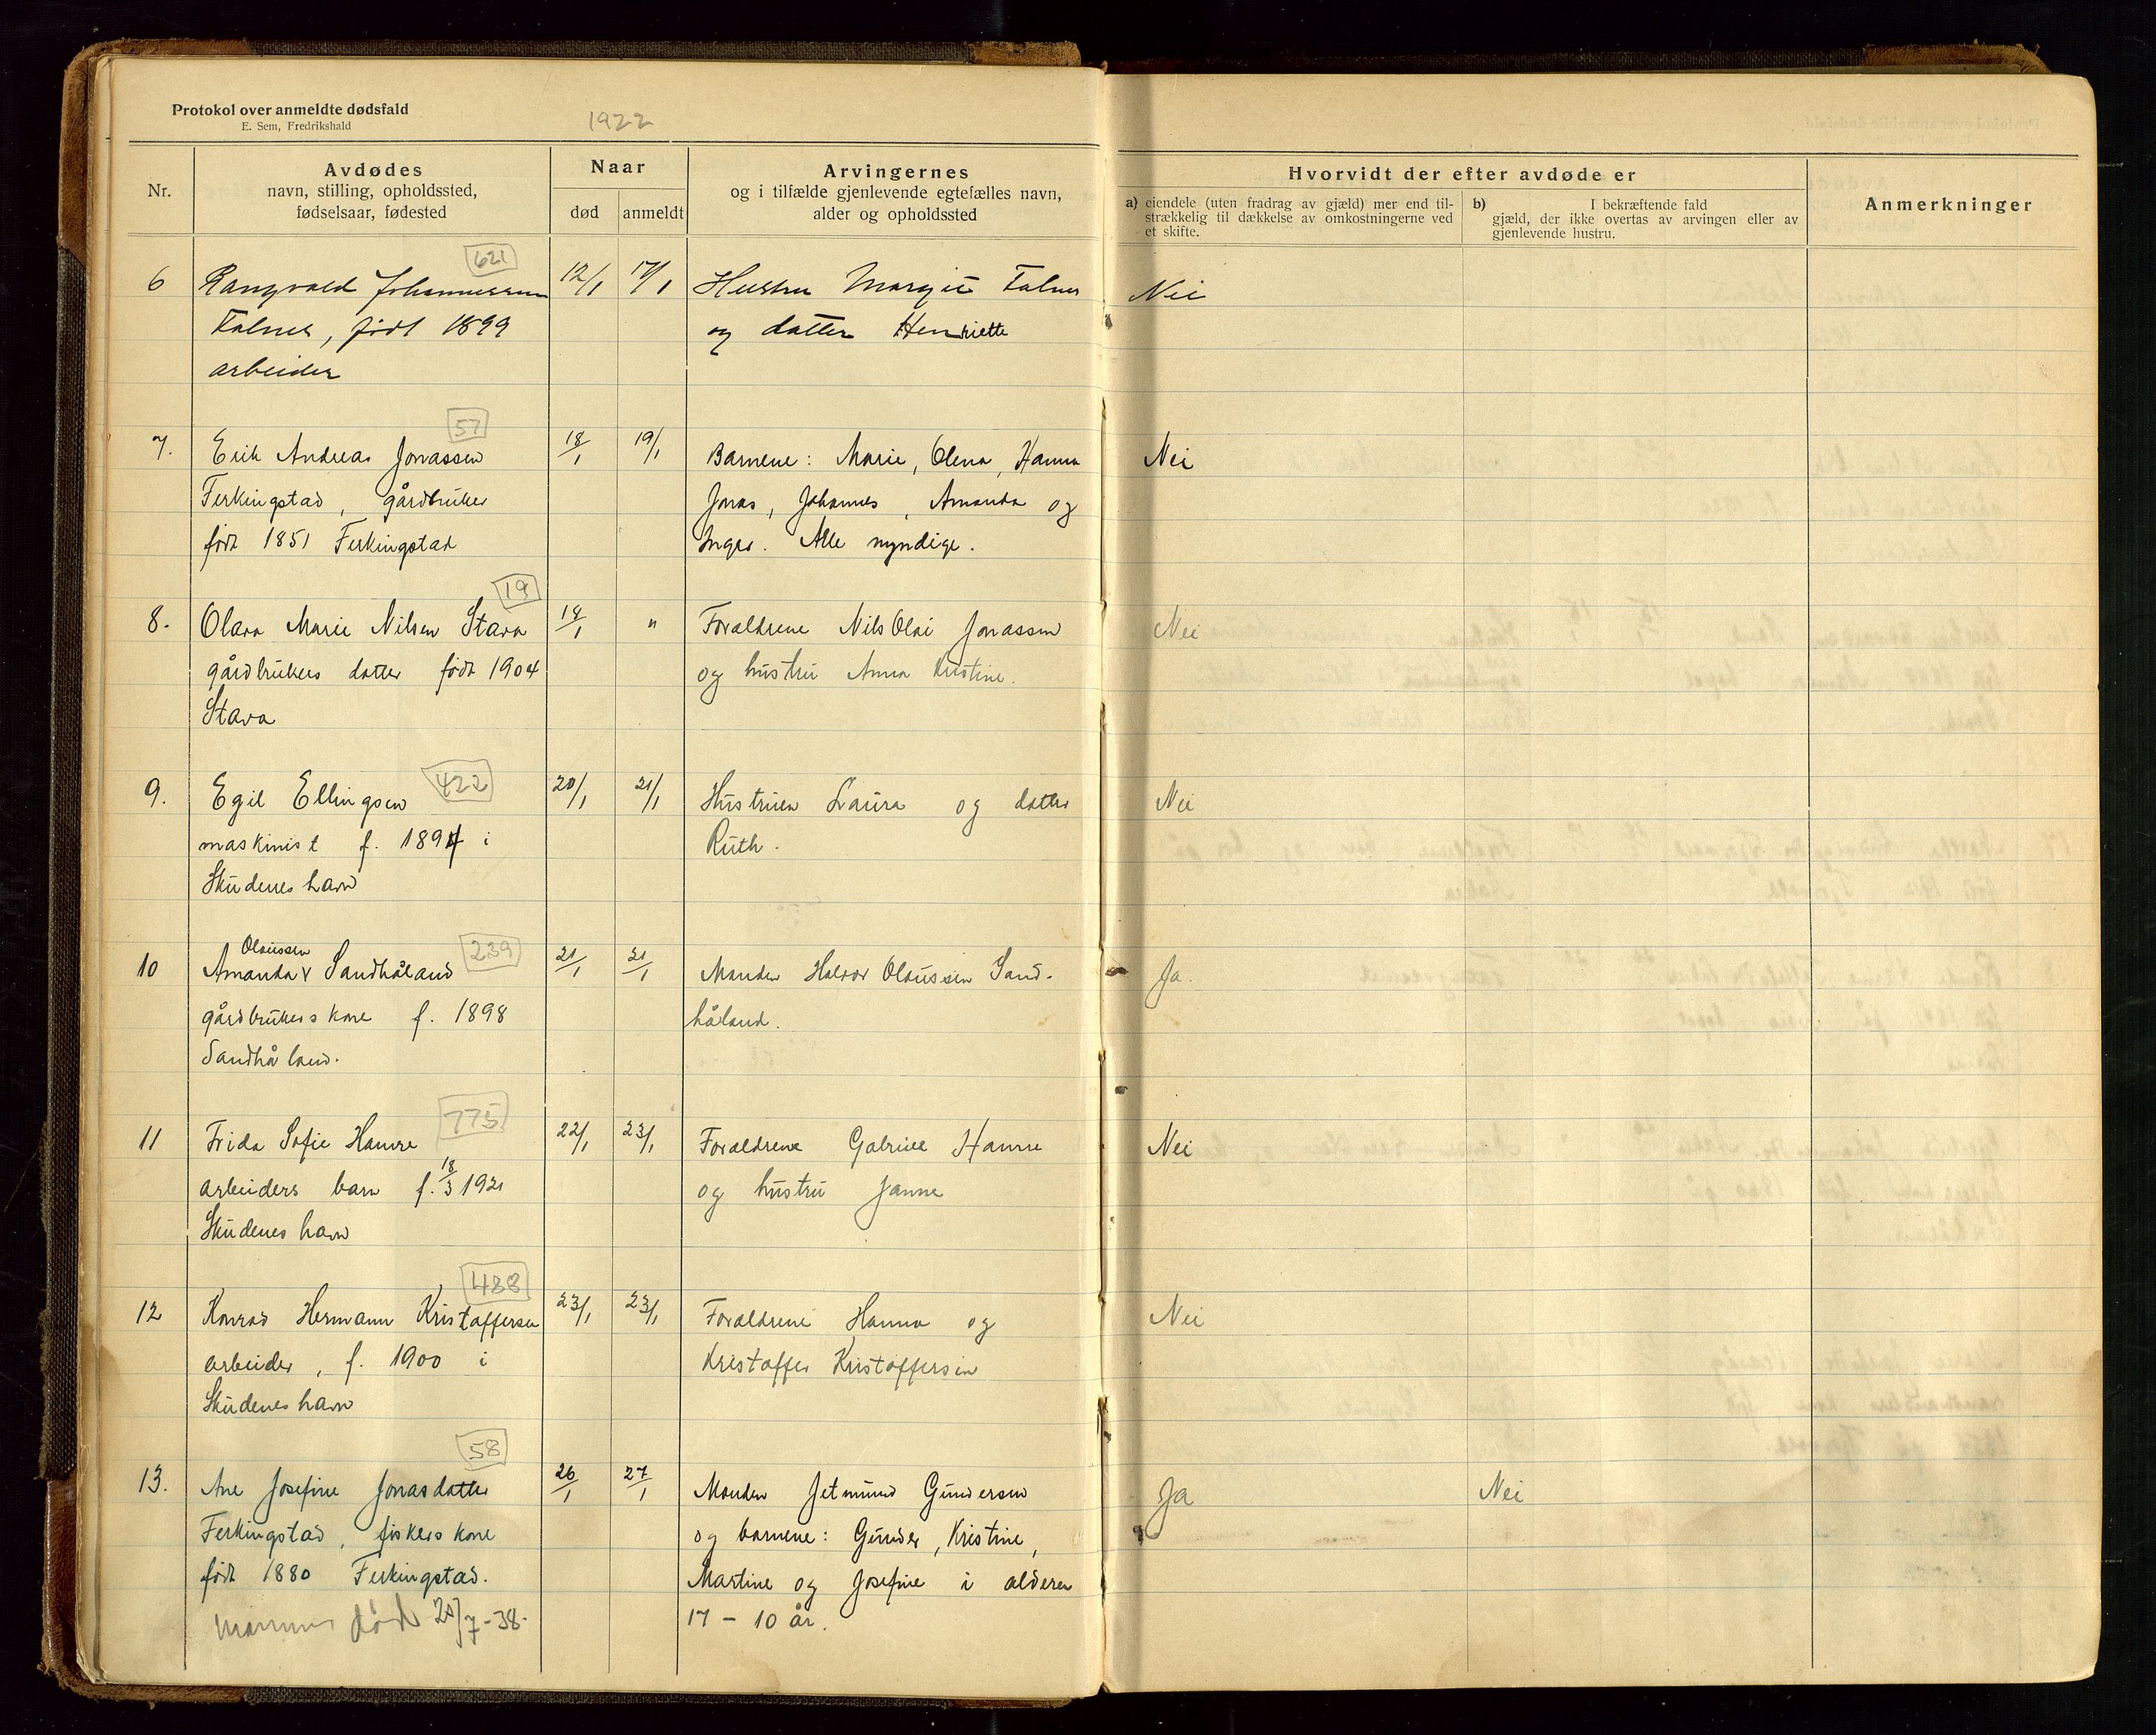 Protokol over anmeldte dødsfald
E. Sem, Fredrikshald
1922
Nr.
Avdødes
navn, stilling, opholdssted,
fødselsaar, fødested
Naar
død
anmeldt
Arvingernes
og i tilfælde gjenlevende egtefælles navn,
alder og opholdssted
Hvorvidt der efter avdøde er
a) eiendele (uten fradrag av gjæld) mer end til-
strækkelig til dækkelse av omkostningerne ved
et skifte.
b) I bekræftende fald
gjæld, der ikke overtas av arvingen eller av
gjenlevende hustru.
Anmerkninger
621
6 Rangvald Johannessen 12/1 17/1 Hustru Margit Falnes Nei
Falnes, født 1899 og datter Henriette
arbeider
57
7. Erik Andreas Jonassen 18/1 19/1 Barnene: Marie, Olena, Hanna Nei
Ferkingstad, gårdbruker Jonas, Johannes, Amanda og
født 1851 Ferkingstad Inger. Alle myndige.
19
8. Olava Marie Nilsen Stava 18/1 " Forældrene Nils Olai Jonassen Nei
gårdbrukers datter født 1904 og hustru Anna Kristine.
Stava
422
9. Egil Ellingsen 20/1 21/1 Hustruen Laura og datter Nei
maskinist f. 1894 i Ruth.
Skudeneshavn
Olaussen 239
10 Amanda Sandhåland 21/1 21/1 Manden Halvor Olaussen Sand- Ja.
gårdbrukers kone f. 1898 håland.
Sandhåland.
775
11 Frida Sofie Hamre 22/1 23/1 Forældrene Gabriel Hamre Nei
arbeiders barn f. 18/3 1921 og hustru Janne
Skudeneshavn
488
12 Konrad Hermann Kristoffersen 23/1 23/1 Forældrene Hanna og Nei
arbeider, f. 1900 i Kristoffer Kristoffersen
Skudeneshavn
58
13. Ane Josefine Jonasdatter 26/1 27/1 Manden Jetmund Gundersen Ja Nei
Ferkingstad, fiskers kone og barnene: Gunder, Kristine,
født 1880 Ferkingstad. Martine og Josefine i alderen
død 20/7-38. 17 - 10 år.